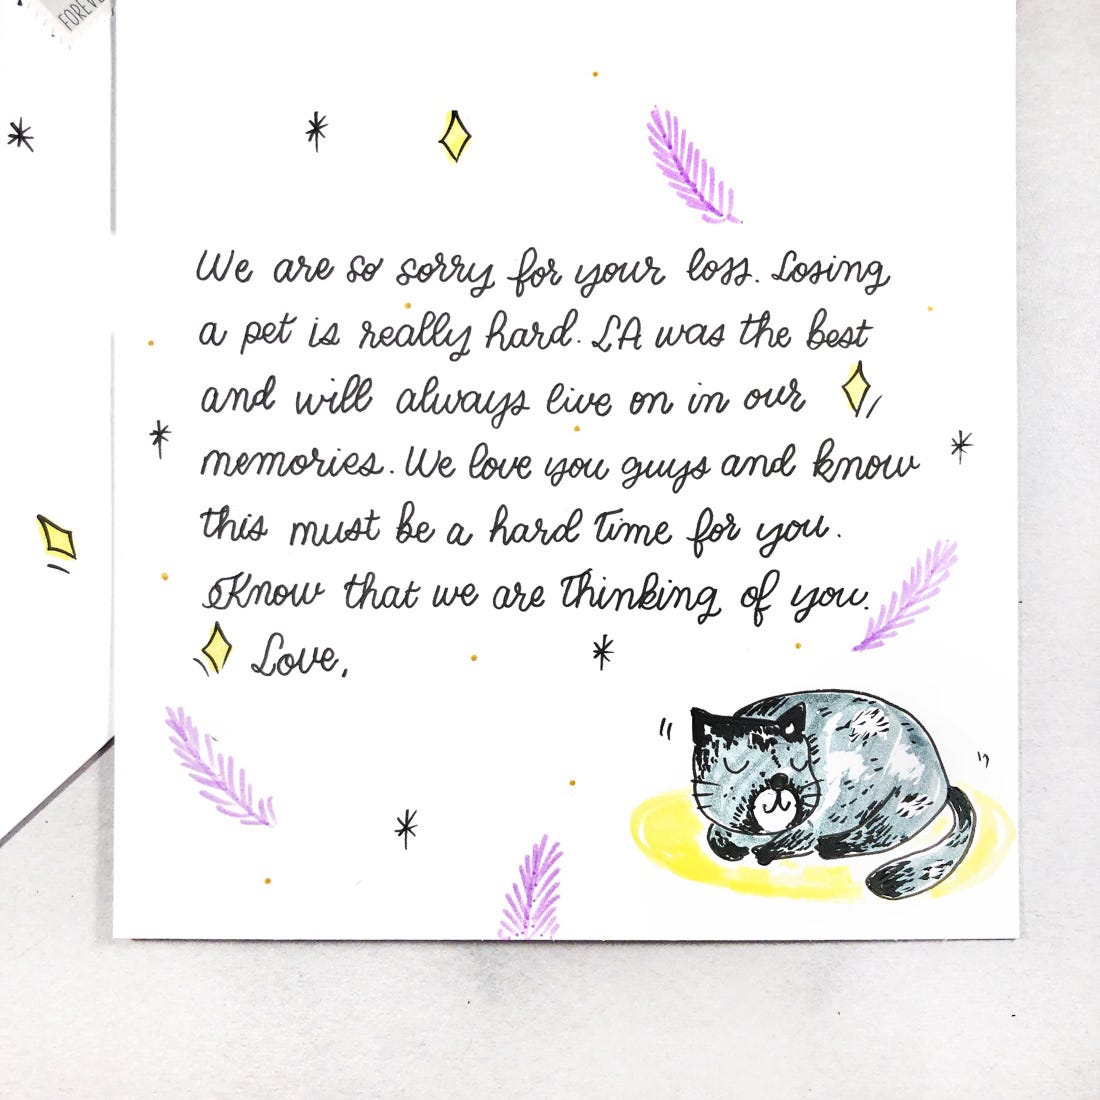 FOREVE
We are so sorry for your loss. Losing
a pet is really hard. LA was the best
and will always live on in our
memories. We love you guys and know
this must be a hard time for you.
Know that we are thinking of you.
Love,